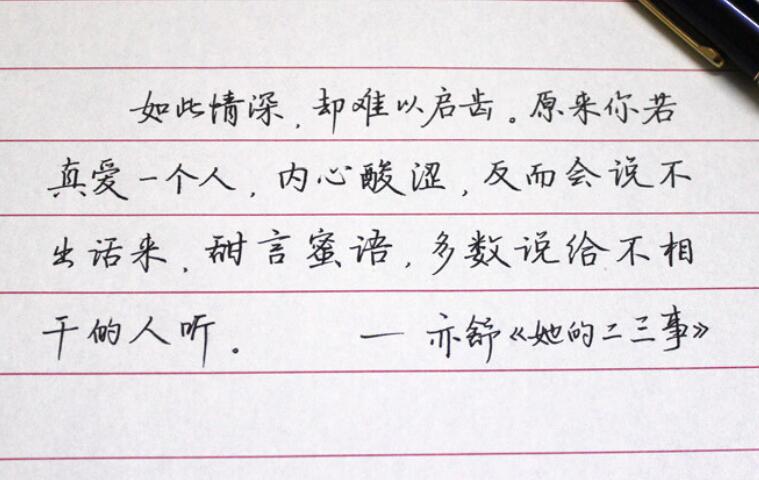 如此情深，却难以启齿。原来你若
真爱一个人，内心酸涩，反而会说不
出话来，甜言蜜语，多数说给不相
干的人听。 — 亦舒《她的二三事》